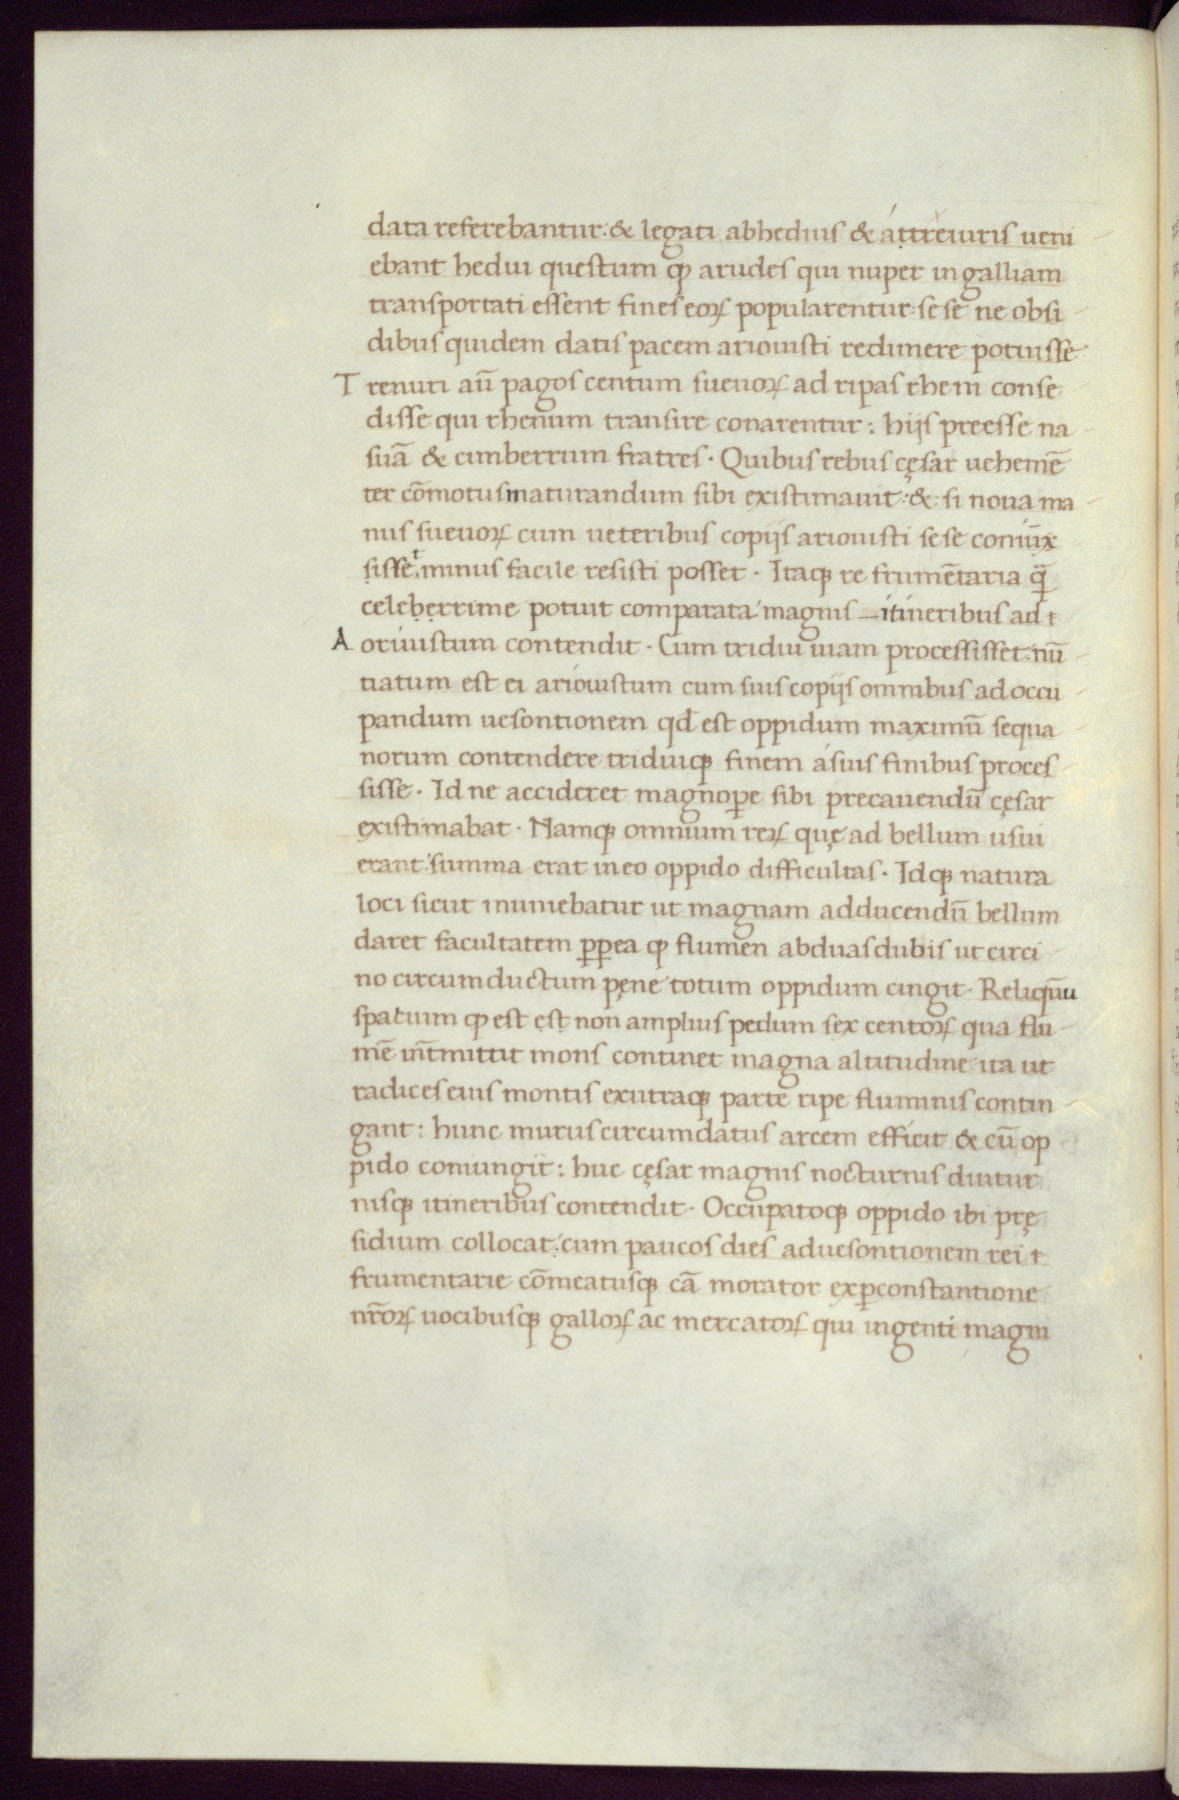 data referebantur: & legati abhedius & a treiuris ueni
ebant hedui questum ꝙ arudes qui nuper in galliam
transportati essent fines eoꝝ popularentur: sese ne obsi
dibus quidem datis pacem ariouisti redimere potuisse
T reuuri aū pagos centum sueuoꝝ ad ripas rheni conse
disse qui rhenum transire conarentur: hijs preesse na
suā & cimberrum fratres · Quibus rebus cęsar uehemē
ter cōmotus maturandum sibi existimauit: & si noua ma
nus sueuoꝝ cum ueteribus copijs ariouisti sese coniūx
sisset minus facile resisti posset · Itaqꝫ re frumētaria q̄
celeberrime potuit comparata magnis itineribus ad
A oriuistum contendit · Cum tridui uiam processisset: nū
tiatum est ei ariouistum cum suis copijs omnibus ad occu
pandum uesontionem qd̄ est oppidum maximū sequa
norum contendere triduiqꝫ finem a suis finibus proces
sisse · Id ne accideret magnoꝑe sibi precauendū cęsar
existimabat · Namqꝫ omnium reꝝ quę ad bellum usui
erant summa erat in eo oppido difficultas · Idqꝫ natura
loci sicut muniebatur ut magnam ad ducendū bellum
daret facultatem ꝓꝑea ꝙ flumen abduas dubis ut circi
no circumductum pęne totum oppidum cingit · Reliqūu
spatium ꝙ est est non amplius pedum sex centoꝝ qua flu
mē int̄mittit mons continet magna altitudine ita ut
radices eius montis ex utraqꝫ parte ripe fluminis contin
gant: hunc murus circumdatus arcem efficit & cū op
pido coniungit: huc cęsar magnis nocturnis diutur
nisqꝫ itineribus contendit · Occupatoqꝫ oppido ibi prę
sidium collocat: cum paucos dies ad uesontionem rei
frumentarie cōmeatusqꝫ cā morator ex ꝑconstantione
nr̄oꝝ uocibusqꝫ galloꝝ ac mercatoꝝ qui ingenti magni